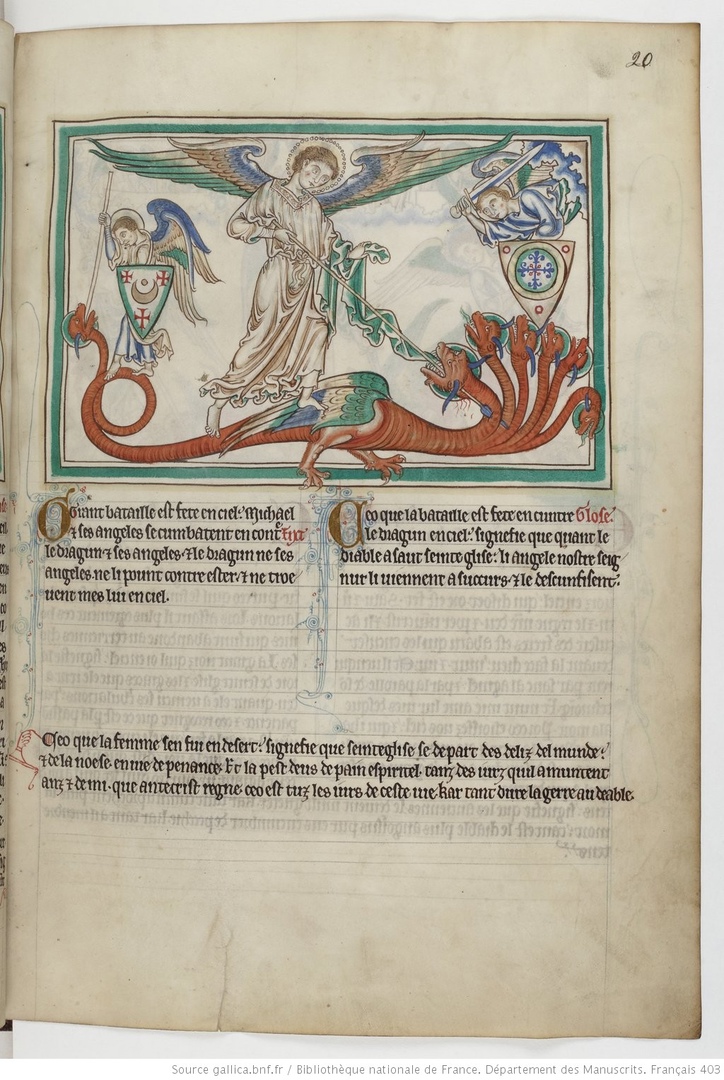 20
Grant bataille est fete en ciel. Michael
⁊ ses angeles se cumbatent en contre Tixt
le dragun ⁊ ses angeles. ⁊ le dragun ne ses
angeles. ne li pount contre ester. ⁊ ne troe
vent mes lui en ciel.
Ceo que la bataille est fete en cuntre Glose.
le dragun en ciel. signefie que quant le
diable asaut seinte glise. li angele nostre seig
nur li viennent a succurs. ⁊ le descunfisent.
Ceo que la femme sen fui en desert. signefie que seinte glise se depart des deliz del munde.
⁊ de la noese. en vie de penance. Et la pest deus de pain espiritel. tanz des iurz quil amuntent
anz ⁊ demi. que antecrist regne. ceo est tuz les iurs de ceste vie. kar tant dure la gerre au deable.
Source gallica.bnf.fr / Bibliothèque nationale de France. Département des Manuscrits. Français 403